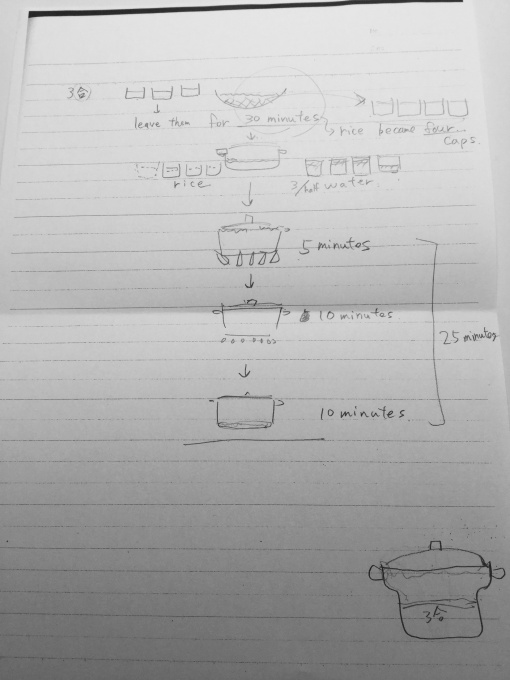 3合
leave them for 30 minutes
rice become four...
caps.
rice
3/half water
5 minutes
10 minutes.
25 minutes
10 minutes.
3合